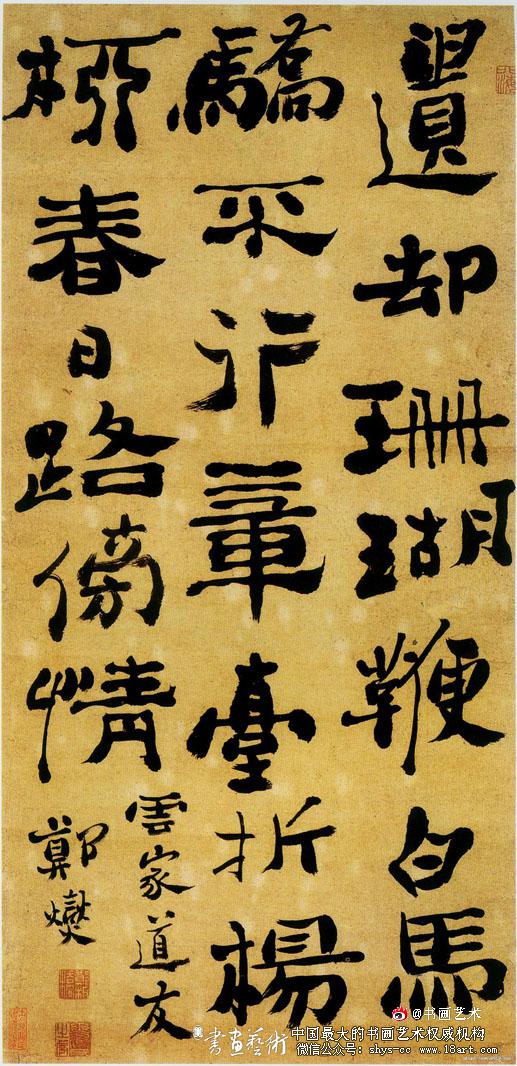 遺却珊瑚鞭白馬
驕不行章臺折楊
桺春日路傍情
雲家道友
鄭燮
@书画艺术
書畫藝術
中国最大的书画艺术权威机构
微信公众号：shys-cc www.18art.com